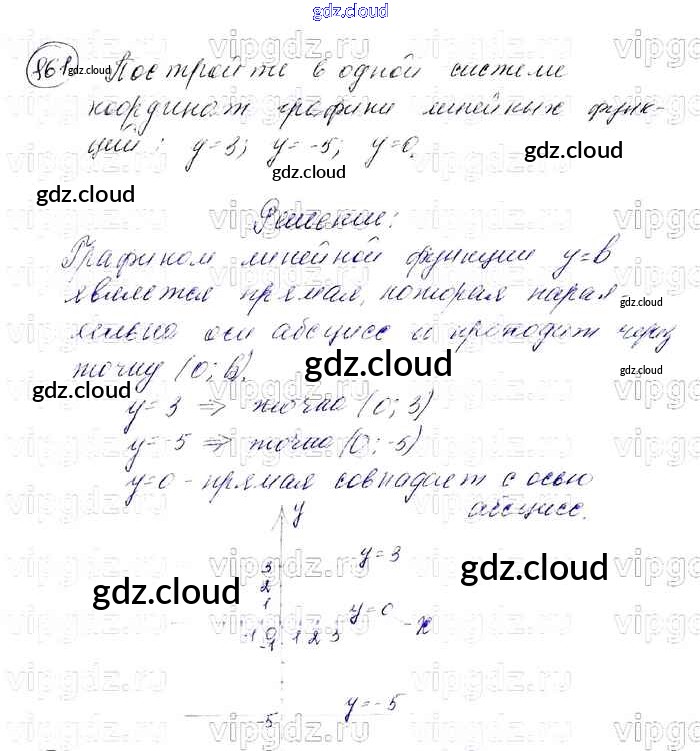 gdz.cloud
861 Постройте в одной системе
координат графики линейных функ-
ций: y=3; y=-5; y=0.
gdz.cloud
gdz.cloud
gdz.cloud
Решение:
Графиком линейной функции y=b
является прямая, которая парал-
лельна оси абсцисс и проходит через
точку (0; b).
gdz.cloud
gdz.cloud
gdz.cloud
gdz.cloud
y=3 ⇒ точка (0; 3)
y=-5 ⇒ точка (0; -5)
y=0 - прямая совпадает с осью
абсцисс.
y
y=3
3
2
1
gdz.cloud
gdz.cloud
y=0
-1 0 1 2 3 x
-1
y=-5
-5